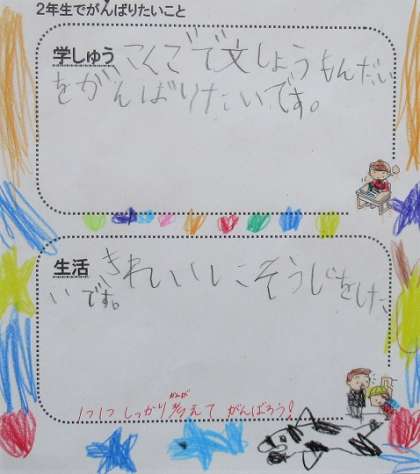 2年生でがんばりたいこと
学しゅう こくごで文しょうもんだい
をがんばりたいです。
生活 きれいにそうじをした
いです。
1つ1つ しっかり考えて がんばろう!
かんが